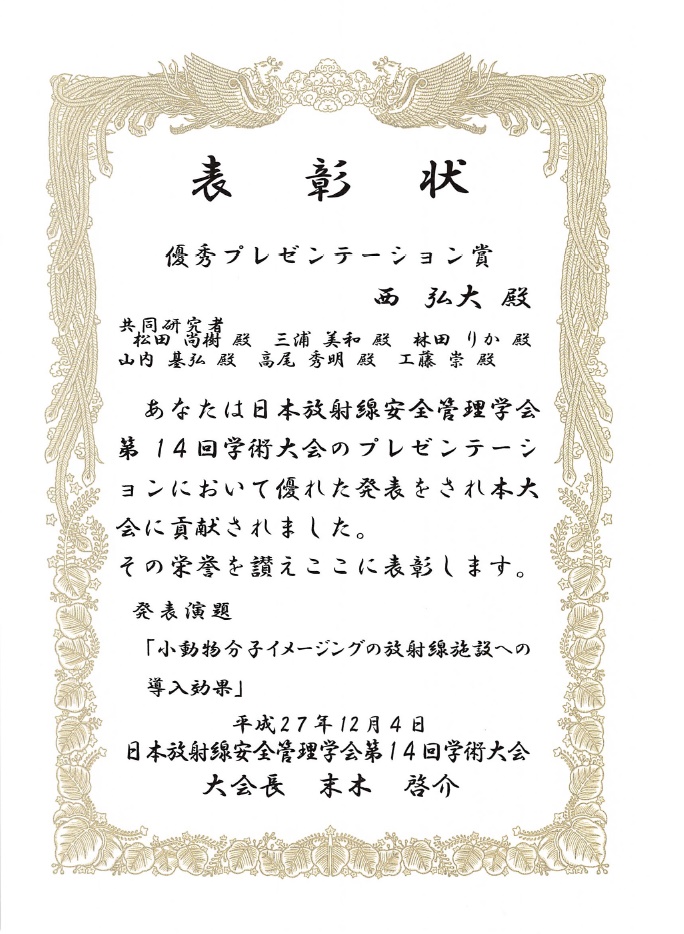 表彰状
優秀プレゼンテーション賞
西 弘大 殿
共同研究者
松田 尚樹 殿 三浦 美和 殿 林田 りか 殿
山内 基弘 殿 高尾 秀明 殿 工藤 崇 殿
あなたは日本放射線安全管理学会
第14回学術大会のプレゼンテーシ
ョンにおいて優れた発表をされ本大
会に貢献されました。
その栄誉を讃えここに表彰します。
発表演題
「小動物分子イメージングの放射線施設への
導入効果」
平成27年12月4日
日本放射線安全管理学会第14回学術大会
大会長 末木 啓介